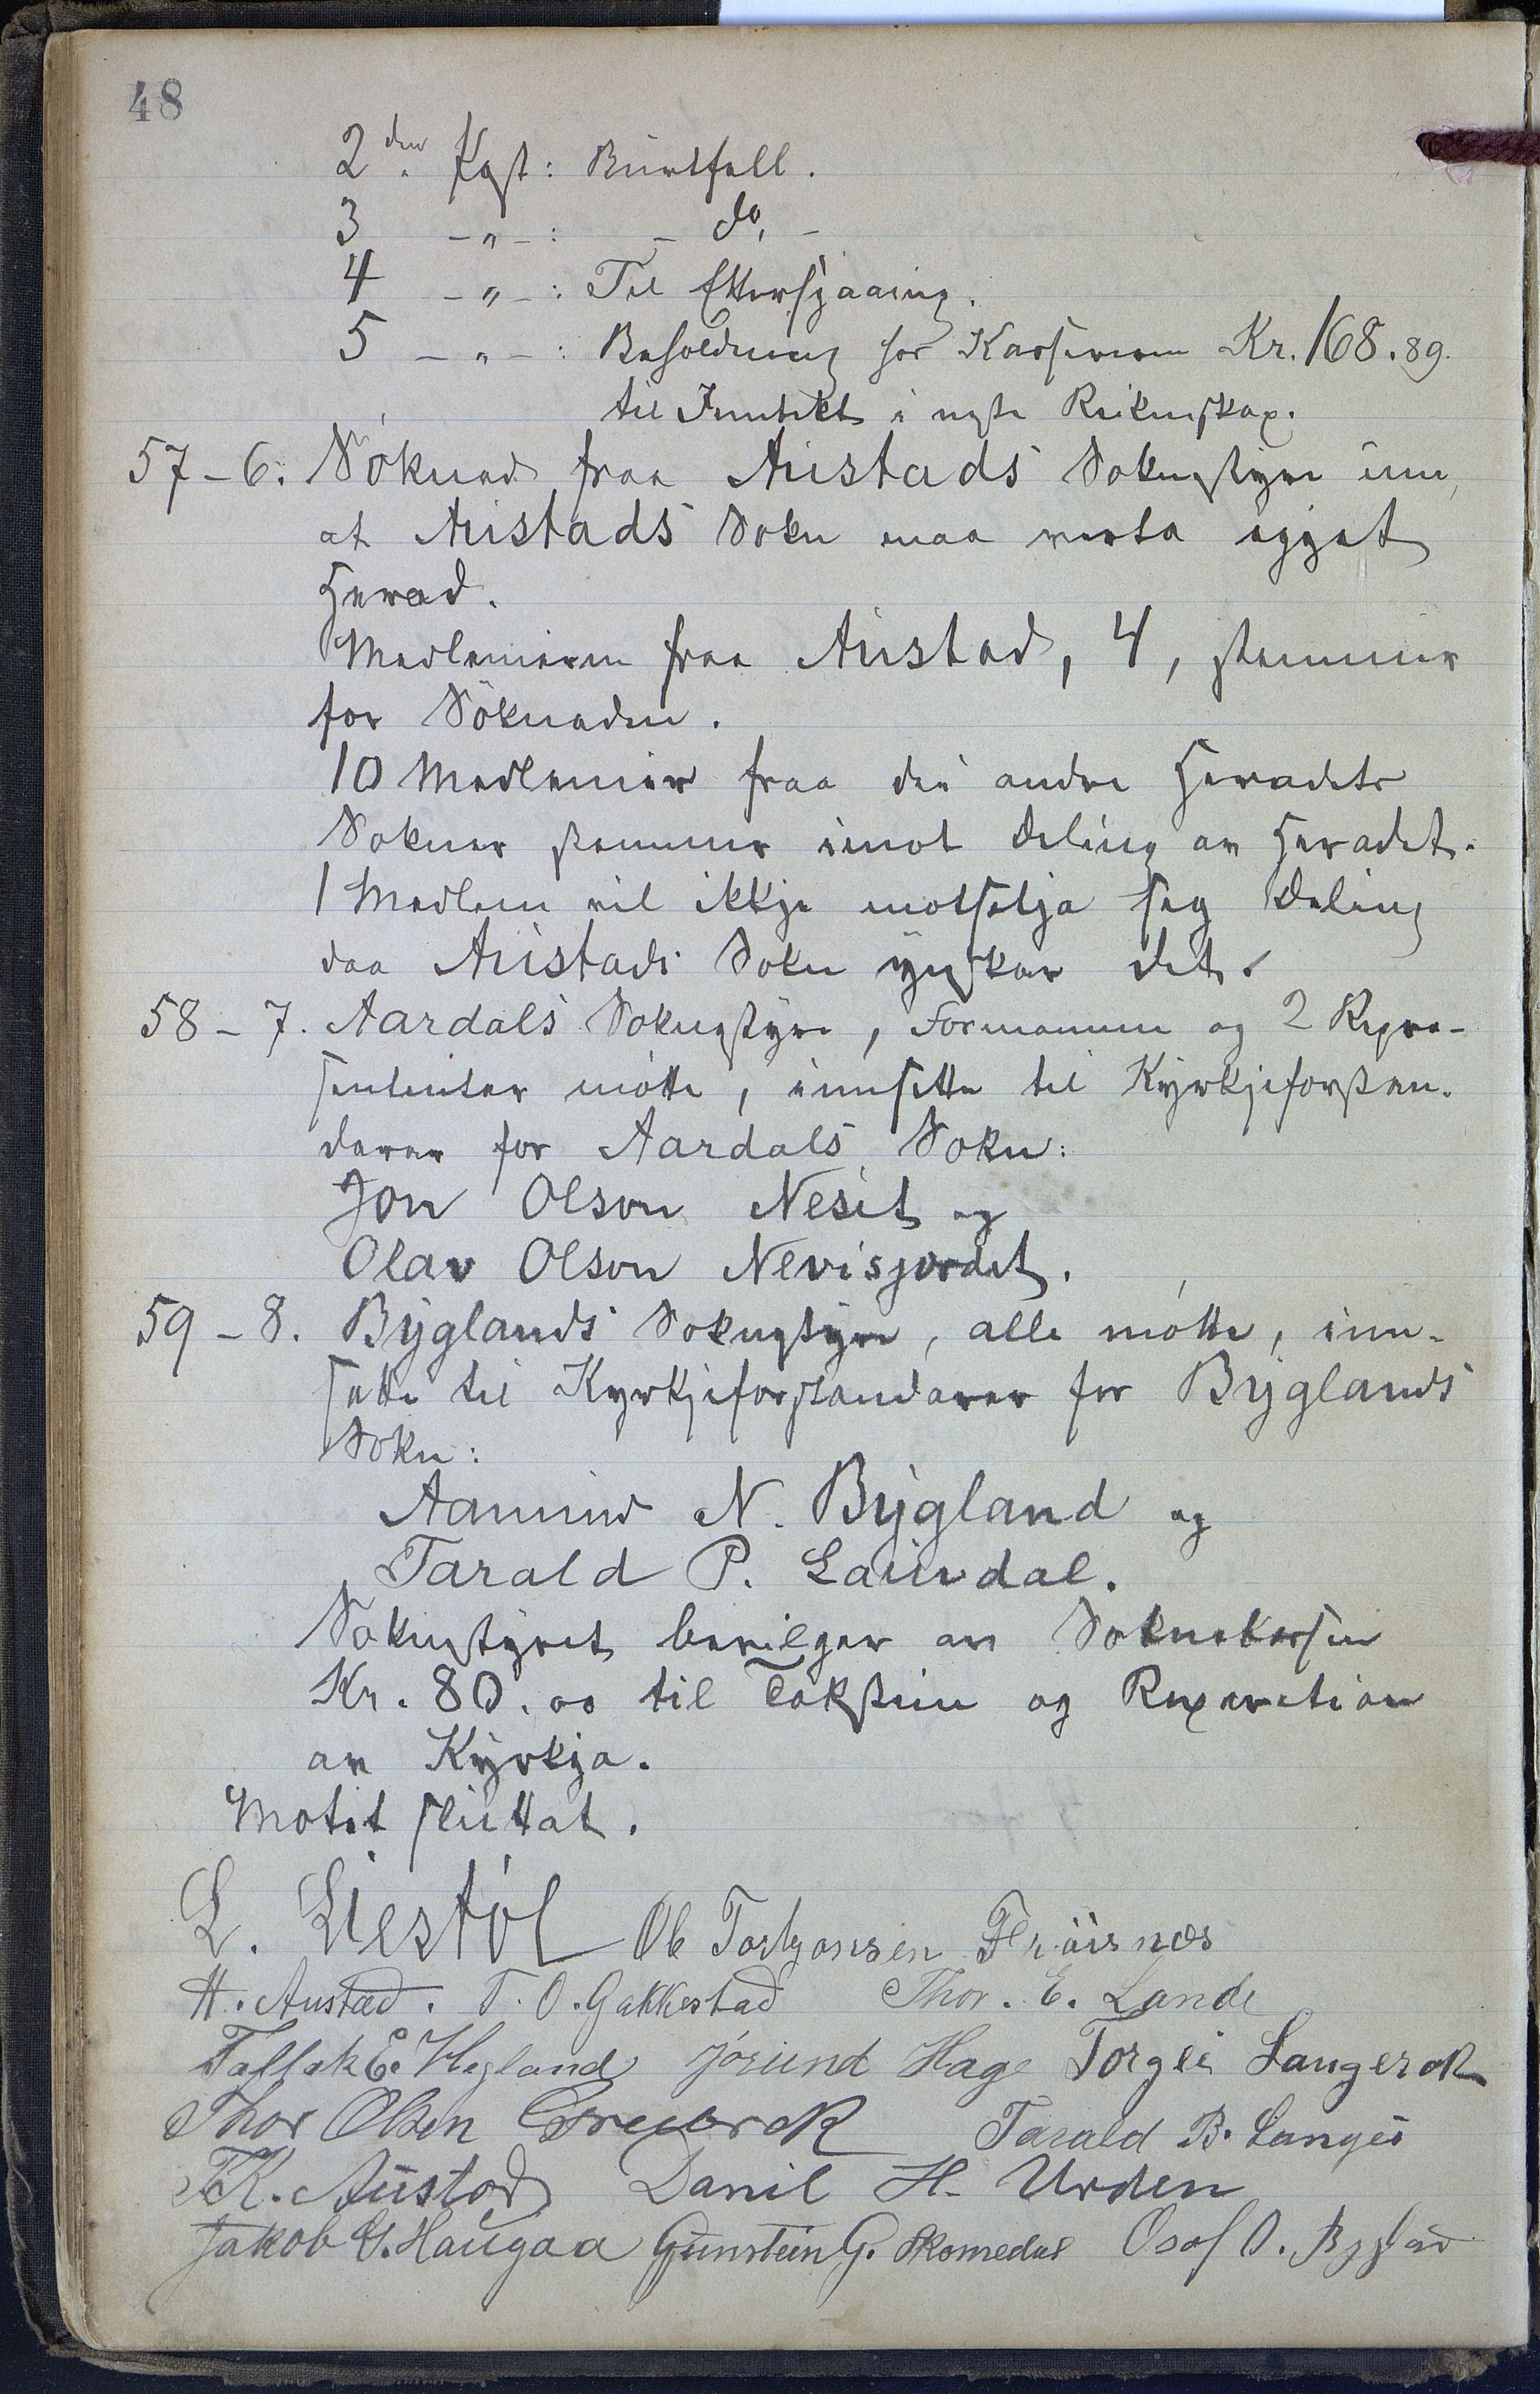 48
2den Post: Burtfell.
3 - " - : - do, -
4 - " - : Til Ettersjaaing.
5 - " - : Besoldning for Kasseraren Kr. 168.89.
til Inntekt i nyste Reikneskap.
57 - 6. Söknad fraa Austads Soknestyre um,
at Austads Sokn maa verta egjet
Herad.
Medlemiren fraa Austad, 4, stemmer
for Söknaden.
10 Medlemier fraa dei andre Heradets
Sokner stemmer imot Deling av Heradet.
1 Medlem vil ikkje motsetja seg Deling
daa Austads Sokn ynskar det.
58 - 7. Aardals Soknestyre, Formannen og 2 Repre-
sentanter mötte, innsette til Kyrkjeforstan-
darar for Aardals Sokn:
Jon Olson Neset og
Olav Olson Nevisjordet.
59 - 8. Byglands Soknestyre, alle mötte, inn-
sette til Kyrkjeforstandarar for Byglands
Sokn:
Aamund N. Bygland og
Tarald P. Lauvdal.
Soknestyret beviger av Soknekassen
Kr. 80.00 til Takstein og Reparation
av Kyrkja.
Motet sluttat.
L. Liestøl Ole Torbjønsen Frøisnæs
H. Austad. T. O. Gakkestad Thor. E. Lande
Tallak E. Hegland Jórund Hage Torgei Langerak
Thor Olsen Grendrek Tarald B. Langei
T. K. Austad Daniel H. Urden
Jakob G. Haugaa Gunstein G. Skomedal Osof O. Bygland